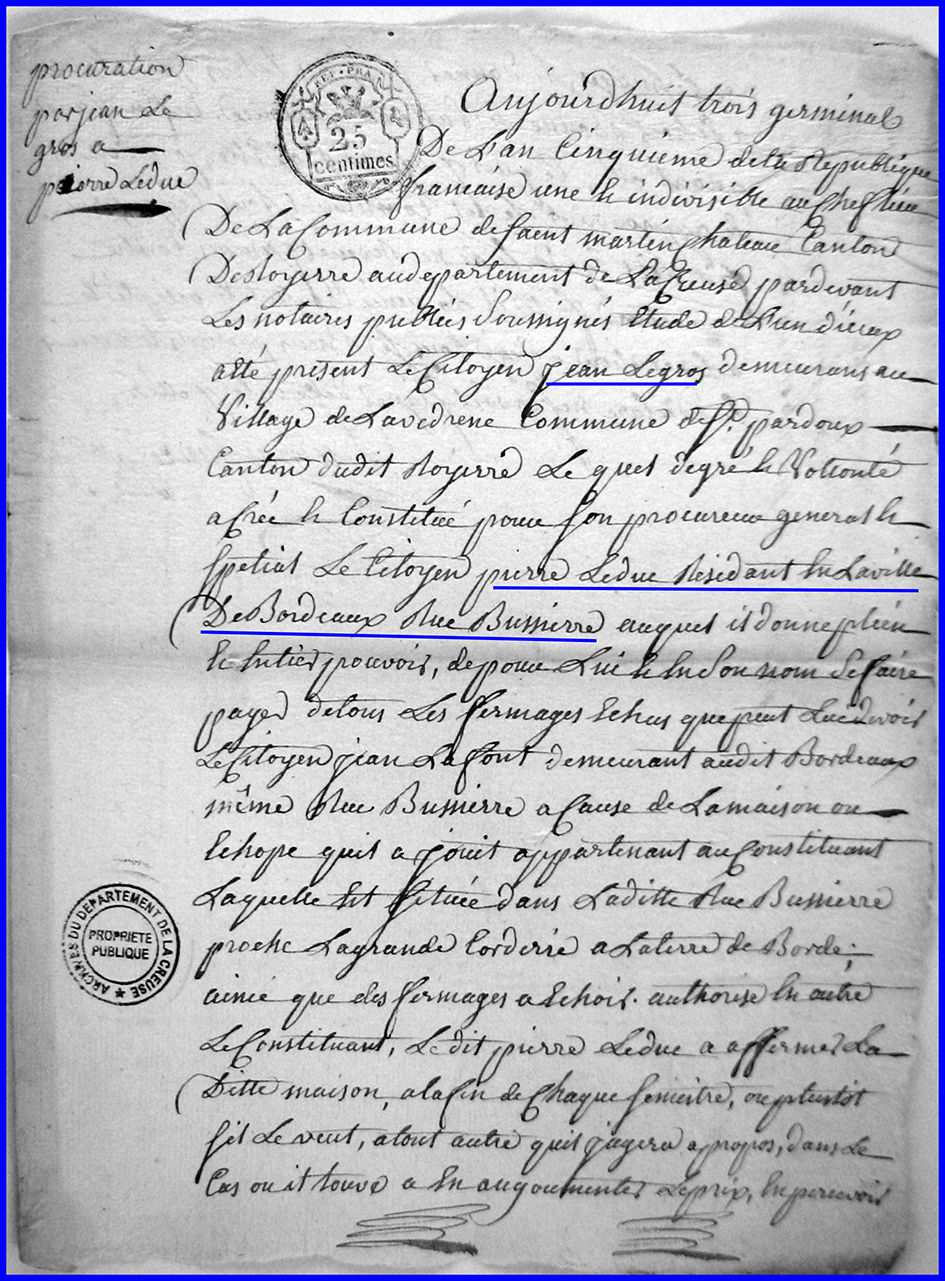 procuration
par jean Le
gros a
pierre Leduc
REP. FRA.
25
centimes
Aujourdhuit trois germinal
De L'an Cinquieme de la Republique
francaise une & indivisible au Chef lieu
De La Commune de saent martin Chateau Canton
De Royerre au departement de La Creuse pardevant
Les notaires publics Soussignés Etude de L'un d'ieux
a été présent Le Citoyen jean Legros demeurant au
Village de Lavedrene Commune de St. pardoux
Canton dudit Royerre Le quel de gré & Volonté
a Créé & Constitué pour son procureur general &
spetial Le Citoyen pierre Leduc Résidant En Laville
De Bordeaux Rue Bussierre auquel il donne plein
& Entier pouvoir, de pour Lui & En Son nom Se faire
payer de tous Les fermages Echus que peut Lui devoir
Le Citoyen jean Lafont demeurant audit Bordeaux
même Rue Bussierre a Cause de Lamaison ou
Echope quil a jouit appartenant au Constituant
Laquelle Est Située dans Laditte Rue Bussierre
proche Lagrande Corderie a Laterre de Borde;
ainié que des fermages a Echoir. authorise En autre
Le Constituant, Le dit pierre Leduc a affermer La
Ditte maison, a la fin de Chaque semeitre, ou plentot
sil Le veut, a tout autre quil jugera a propos, dans Le
Cas ou il touve a En augoumenter Le prix, En percevoir
ARCHIVES DU DEPARTEMENT DE LA CREUSE
PROPRIETE
PUBLIQUE